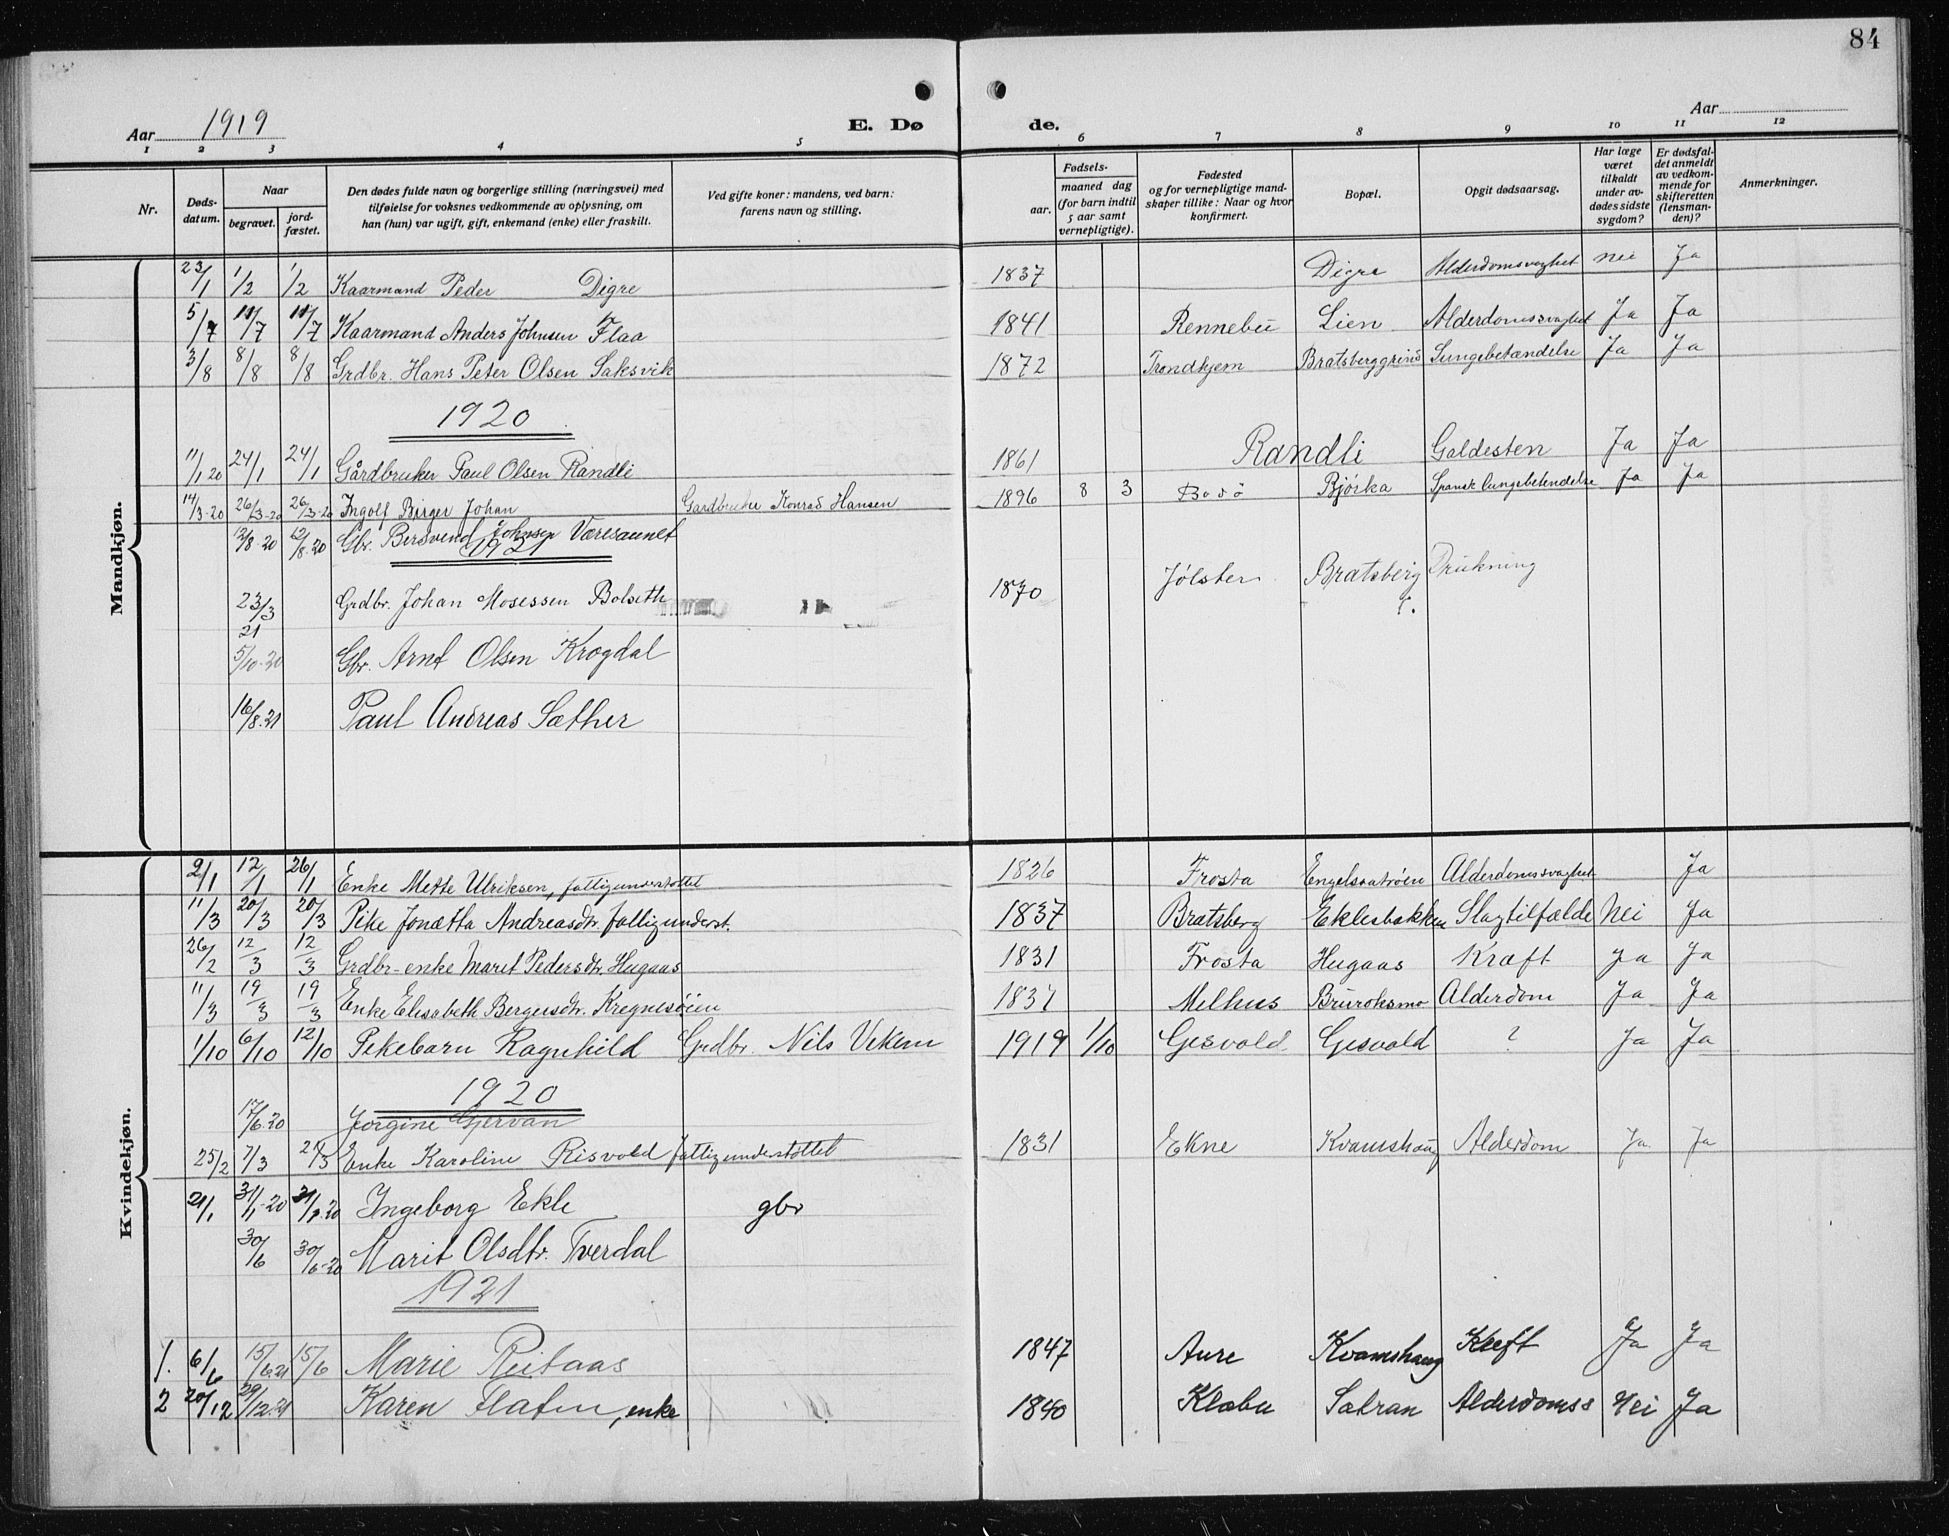 84
Aar 1919
E. Dø
de.
Aar
1 2 3 4 5 6 7 8 9 10 11 12
Nr.
Døds-
datum.
Naar
begravet.
jord-
fæstet.
Den dødes fulde navn og borgerlige stilling (næringsvei) med
tilføielse for voksnes vedkommende av oplysning, om
han (hun) var ugift, gift, enkemand (enke) eller fraskilt.
Ved gifte koner: mandens, ved barn:
farens navn og stilling.
Fødsels-
aar.
maaned dag
(for barn indtil
5 aar samt
vernepligtige).
Fødested
og for vernepligtige mand-
skaper tillike: Naar og hvor
konfirmert.
Bopæl.
Opgit dødsaarsag.
Har læge
været
tilkaldt
under av-
dødes sidste
sygdom?
Er dødsfal-
det anmeldt
av vedkom-
mende for
skifteretten
(lensman-
den)?
Anmerkninger.
Mandkjøn.
23/1 1/2 1/2 Kaarmand Peder Digre 1837 Digre Alderdomsvaghet Nei Ja
5/7 11/7 11/7 Kaarmand Anders Johnsen Flaa 1841 Rennebu Lien Alderdomssvaghet Ja Ja
3/8 8/8 8/8 Grdbr. Hans Peter Olsen Saksvik 1872 Trondhjem Lungebetændelse Ja Ja
1920
11/1 20 24/1 24/1 Gårdbruker Paul Olsen Randli 1861 Randli Galdesten Ja Ja
14/3-20 26/3-20 26/3-20 Ingolf Birger Johan Gardbruker Konrad Hansen 1896 8 3 Bodö Bjørka Spansk lungebetendelse Ja Ja
/8 20 /8.20 Gbr. Bersvend Johnsen Væresaunet
1921
23/3 21 Grdbr. Johan Mosessen Bolseth 1870 Jølster Bratsberg Drukning
5/10-20 Gbr. Arnt Olsen Krogdal
16/8.21 Paul Andreas Sæther
Kvindekjøn.
2/1 12/1 26/1 Enke Mette Ulriksen, fattigunderstøttet 1826 Frosta Alderdomssvaghet Ja
11/3 20/3 20/3 Pike Jonætta Andreasdtr. fattigunderst. 1837 Bratsberg Eklesbakken Slagtilfælde Nei Ja
26/2 12/3 12/3 Grdbr-enke Marit Pedersdtr. Hugaas 1831 Frosta Hugaas Kræft Ja Ja
11/3 19/3 19/3 Enke Elisabeth Bergersdtr. 1837 Melhus Alderdom Ja Ja
1/10 6/10 12/10 Pikebarn Ragnhild Grdbr. Nils Vekem 1919 1/10 Gisvold Gisvold ? Ja Ja
1920
17/6.20 Jorgine Gjervan
25/2 7/3 21/3 Enke Karoline Risvold fattigunderstøttet 1831 Ekne Kvamshaug Alderdom Ja Ja
21/1 31/1-20 Ingeborg Ekle gbr
30/6 30/6-20 Marit Olsdtr. Tverdal
1921
1. 6/6 15/6.21 15/6 Marie Reitaas 1847 Aure Kvamshaug Kreft Ja Ja
2 20/12 29/12.21 Karen Flaten, enke 1840 Klæbu Sætran Alderdomss Nei Ja